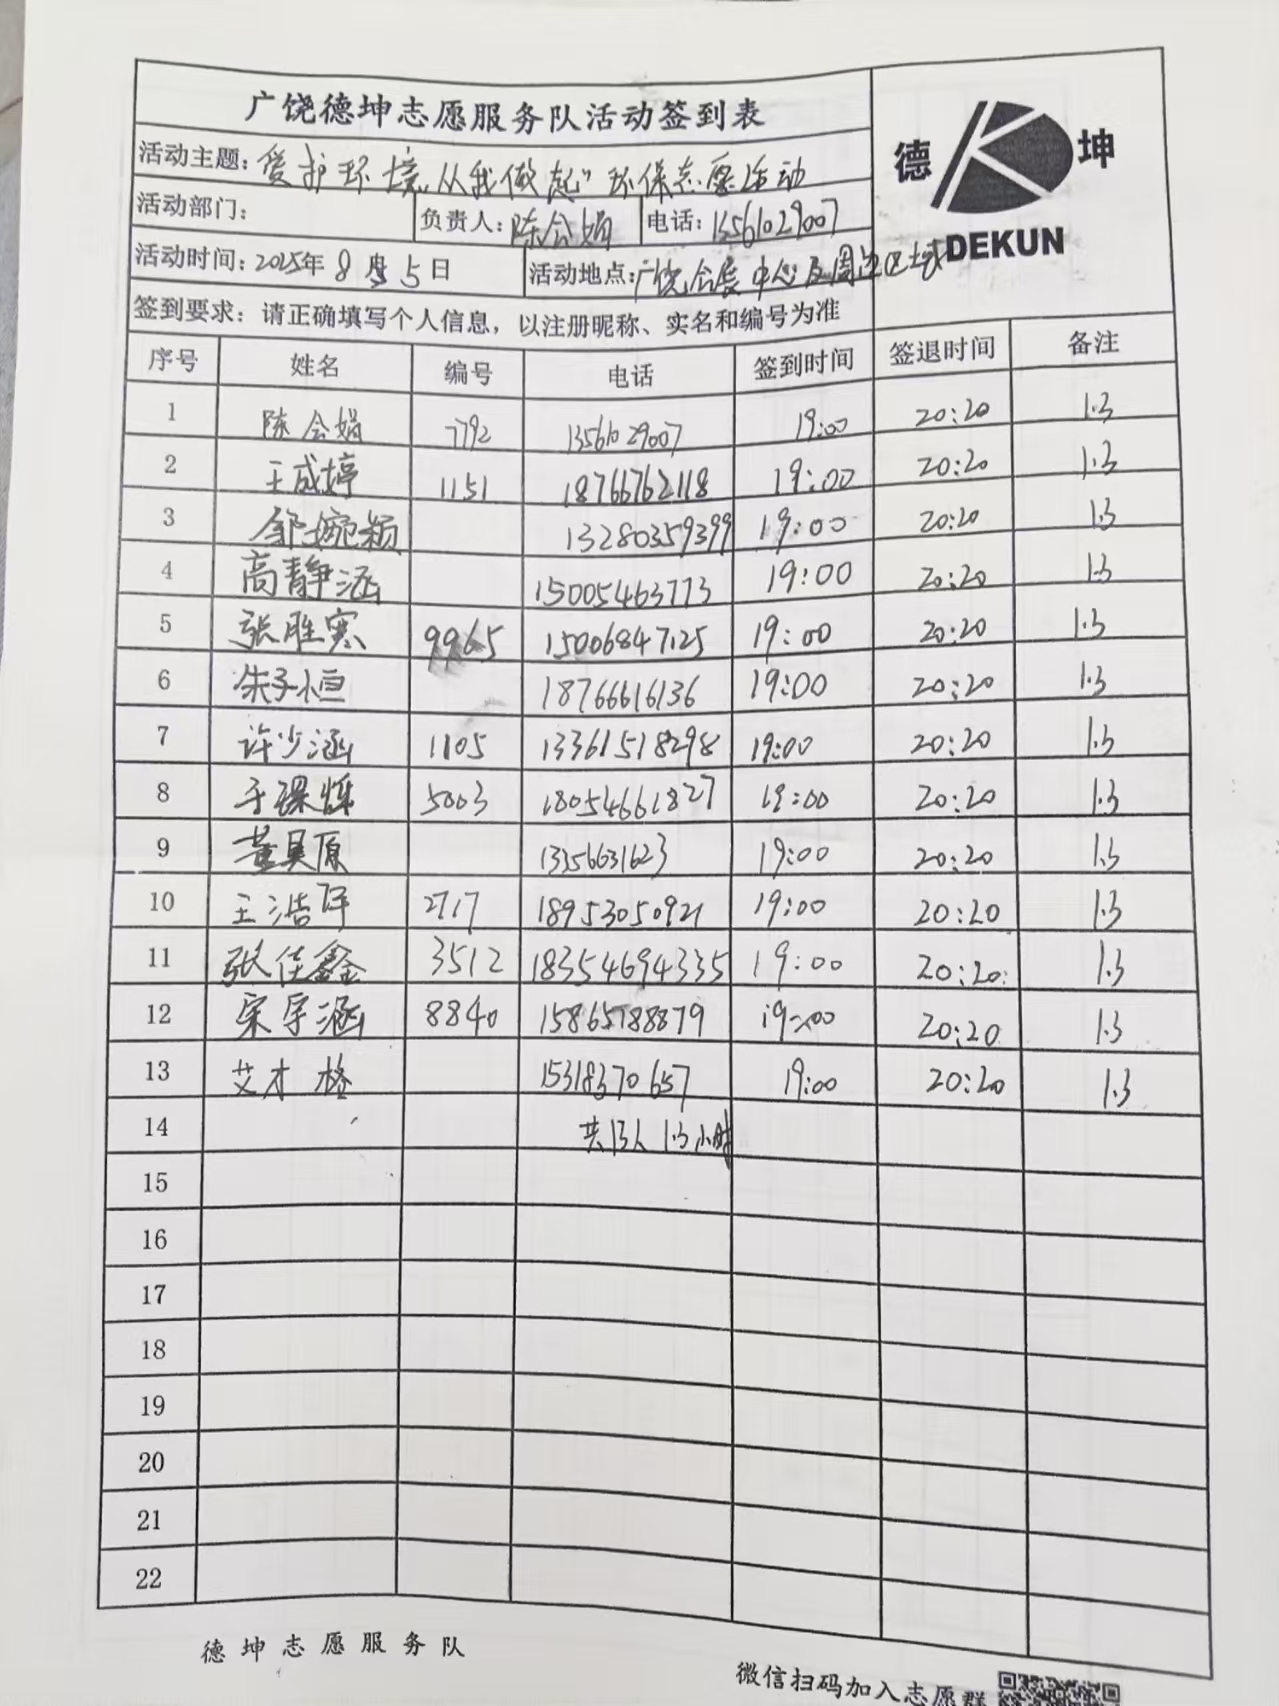 广饶德坤志愿服务队活动签到表
德 坤
DEKUN
活动主题：爱护环境"从我做起"环保志愿活动
活动部门： 负责人：陈会娟 电话：13561029007
活动时间：2025年8月5日 活动地点：广饶会展中心及周边区域
签到要求：请正确填写个人信息，以注册昵称、实名和编号为准
序号 姓名 编号 电话 签到时间 签退时间 备注
1 陈会娟 7792 13561029007 19:00 20:20 1.3
2 王成婷 1151 18766762118 19:00 20:20 1.3
3 邹婉颖 13280359399 19:00 20:20 1.3
4 高静涵 15005463773 19:00 20:20 1.3
5 张胜寒 9965 15006847125 19:00 20:20 1.3
6 朱子恒 18766616136 19:00 20:20 1.3
7 许少涵 1105 13361518298 19:00 20:20 1.3
8 于 5003 18054661827 19:00 20:20 1.3
9 董昊原 13356631623 19:00 20:20 1.3
10 王浩 2717 18953050921 19:00 20:20 1.3
11 张佳鑫 3512 18354694335 19:00 20:20 1.3
12 宋宇涵 8840 15865188879 19:00 20:20 1.3
13 艾才格 15318370657 19:00 20:20 1.3
14 共13人 1.3小时
15
16
17
18
19
20
21
22
德坤志愿服务队
微信扫码加入志愿群